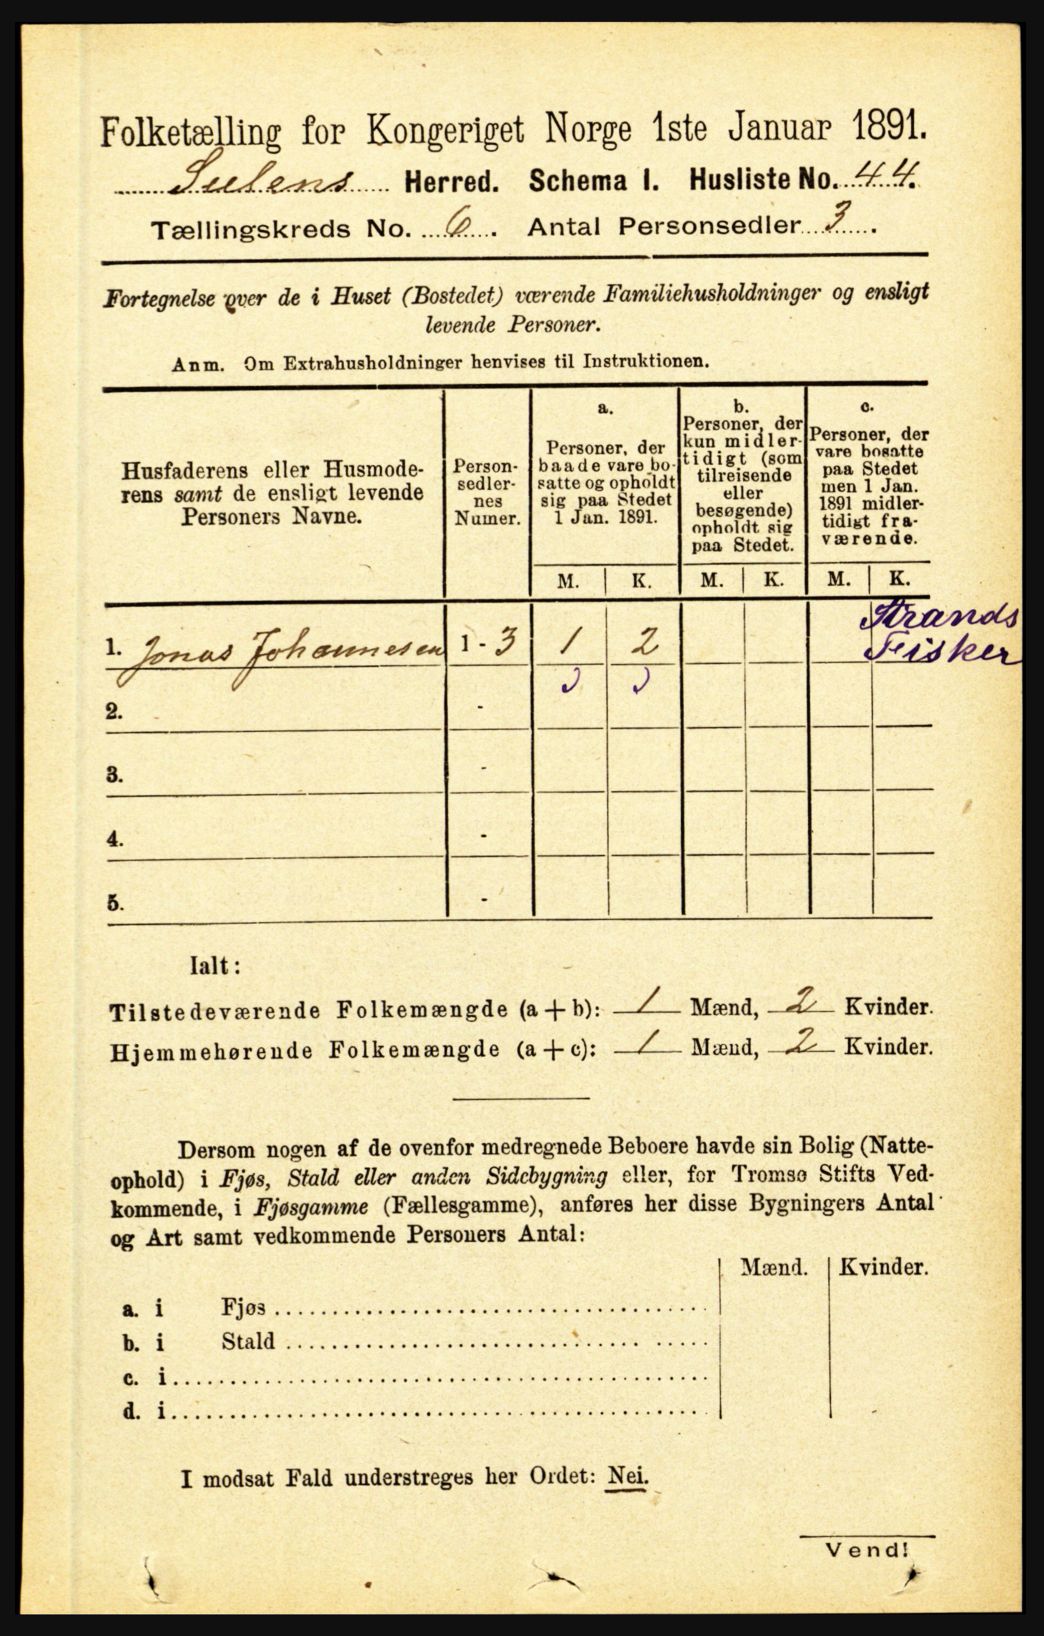 Folketælling for Kongeriget Norge 1ste Januar 1891.
Sulens Herred. Schema I. Husliste No. 44.
Tællingskreds No. 6. Antal Personsedler 3.
Fortegnelse over de i Huset (Bostedet) værende Familiehusholdninger og ensligt
levende Personer.
Anm. Om Extrahusholdninger henvises til Instruktionen.
Husfaderens eller Husmode-
rens samt de ensligt levende
Personers Navne.
Person-
sedler-
nes
Numer.
a.
Personer, der
baade vare bo-
satte og opholdt
sig paa Stedet
1 Jan. 1891.
b.
Personer, der
kun midler-
tidigt (som
tilreisende
eller
besøgende)
opholdt sig
paa Stedet.
c.
Personer, der
vare bosatte
paa Stedet
men 1 Jan.
1891 midler-
tidigt fra-
værende.
M. K. M. K. M. K.
1. Jonas Johannesen 1 - 3 1 2 Strands
Fisker
2. -
3. -
4. -
5. -
Ialt:
Tilstedeværende Folkemængde (a + b): 1 Mænd, 2 Kvinder.
Hjemmehørende Folkemængde (a + c): 1 Mænd, 2 Kvinder.
Dersom nogen af de ovenfor medregnede Beboere havde sin Bolig (Natte-
ophold) i Fjøs, Stald eller anden Sidebygning eller, for Tromsø Stifts Ved-
kommende, i Fjøsgamme (Fællesgamme), anføres her disse Bygningers Antal
og Art samt vedkommende Personers Antal:
Mænd. Kvinder.
a. i Fjøs
b. i Stald
c. i
d. i
I modsat Fald understreges her Ordet: Nei.
Vend!